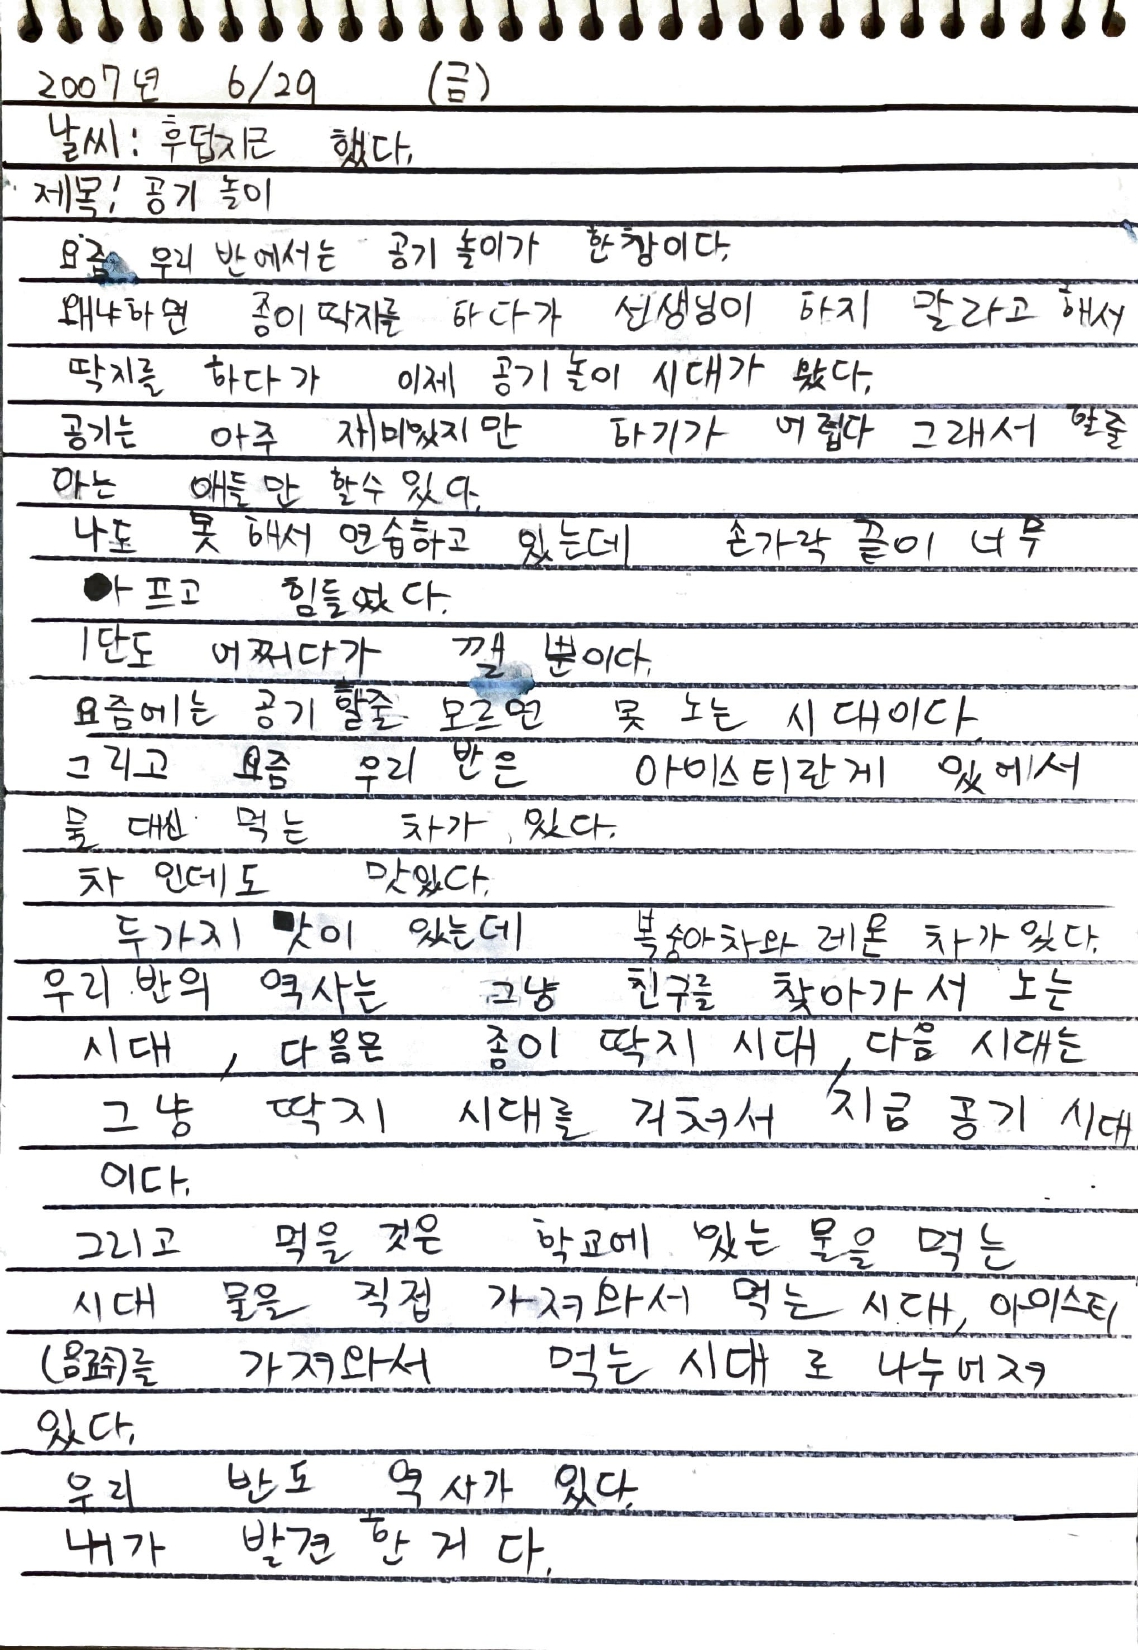 2007년 6/29 (금)
날씨: 후덥지근 했다.
제목! 공기 놀이
요즘 우리 반에서는 공기 놀이가 한참이다.
왜냐하면 종이딱지를 하다가 선생님이 하지 말라고 해서
딱지를 하다가 이제 공기놀이 시대가 왔다.
공기는 아주 재미있지만 하기가 어렵다 그래서 할줄
아는 애들만 할수있다.
나도 못해서 연습하고 있는데 손가락 끝이 너무
아프고 힘들었다.
1단도 어쩌다가 깰 뿐이다.
요즘에는 공기할줄 모르면 못 노는 시대이다.
그리고 요즘 우리 반은 아이스티란게 있에서
물 대신 먹는 차가 있다.
차 인데도 맛있다.
두가지 맛이 있는데 복숭아차와 레몬 차가있다.
우리 반의 역사는 그냥 친구를 찾아가서 노는
시대, 다음은 종이 딱지 시대, 다음 시대는
그냥 딱지 시대를 거쳐서 지금 공기 시대
이다.
그리고 먹을 것은 학교에 있는 물을 먹는
시대 물을 직접 가져와서 먹는 시대, 아이스티
(음료수)를 가져와서 먹는 시대로 나누어져
있다.
우리 반도 역사가 있다.
내가 발견한 거다.